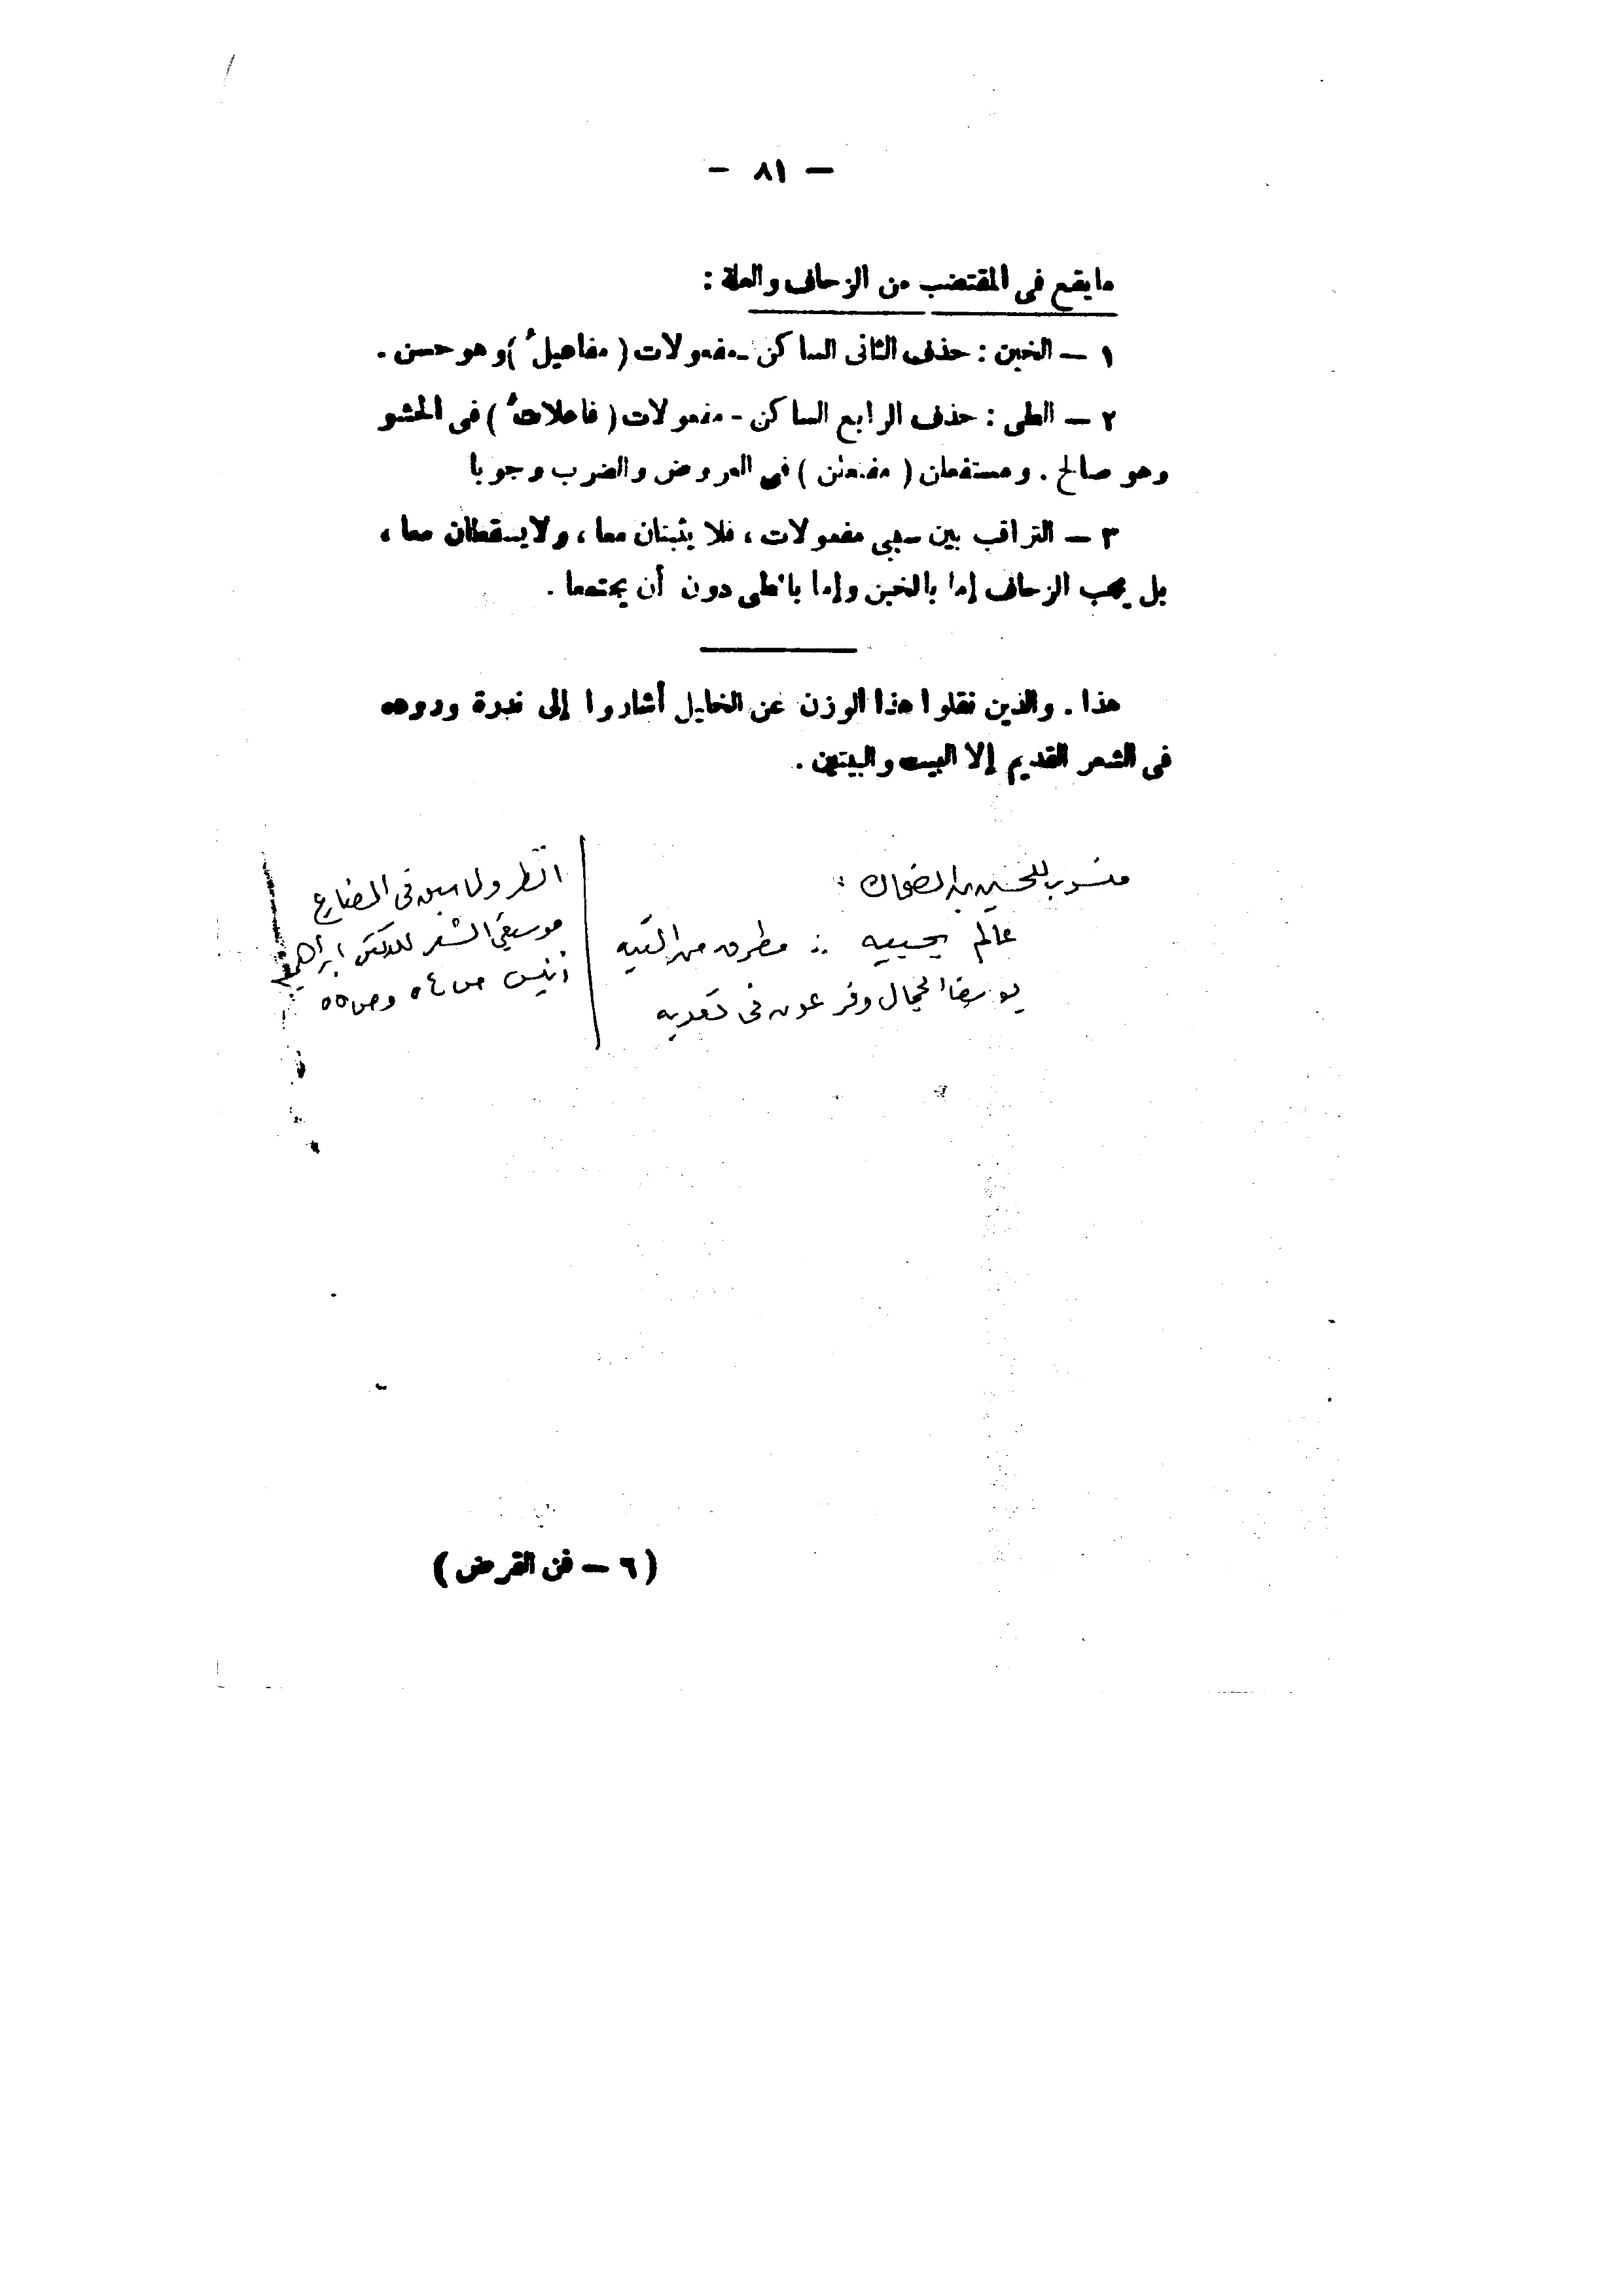 — ٨١ —
ما يقع فى المقتضب من الزحاف والعلة :
١ — الخبن : حذف الثانى الساكن - مفعولات ( مفاعيلُ ) وهو حسن .
٢ — الطى : حذف الرابع الساكن - مفعولات ( فاعلاتُ ) فى الحشو
وهو صالح . ومستفعلن ( مفتعلن ) فى العروض والضرب وجوبا
٣ — التراقب بين سببى مفعولات ، فلا يثبتان معا ، ولا يسقطان معا ،
بل يجب الزحاف إما بالخبن وإما بالطى دون أن يجتمعا .
هذا . والذين نقلوا هذا الوزن عن الخليل أشاروا إلى ندرة وروده
فى الشعر القديم إلا البيت والبيتين .
منسوب للحسين بن الضحاك :
عالم بحبيه :: مطرق من التيه
يوسف الجمال وفرعون فى تعديه
انظر فى المضارع
موسيقى الشعر للدكتور ابراهيم
أنيس ص ٥٤ وص ٥٥
( ٦ — فن القرض )